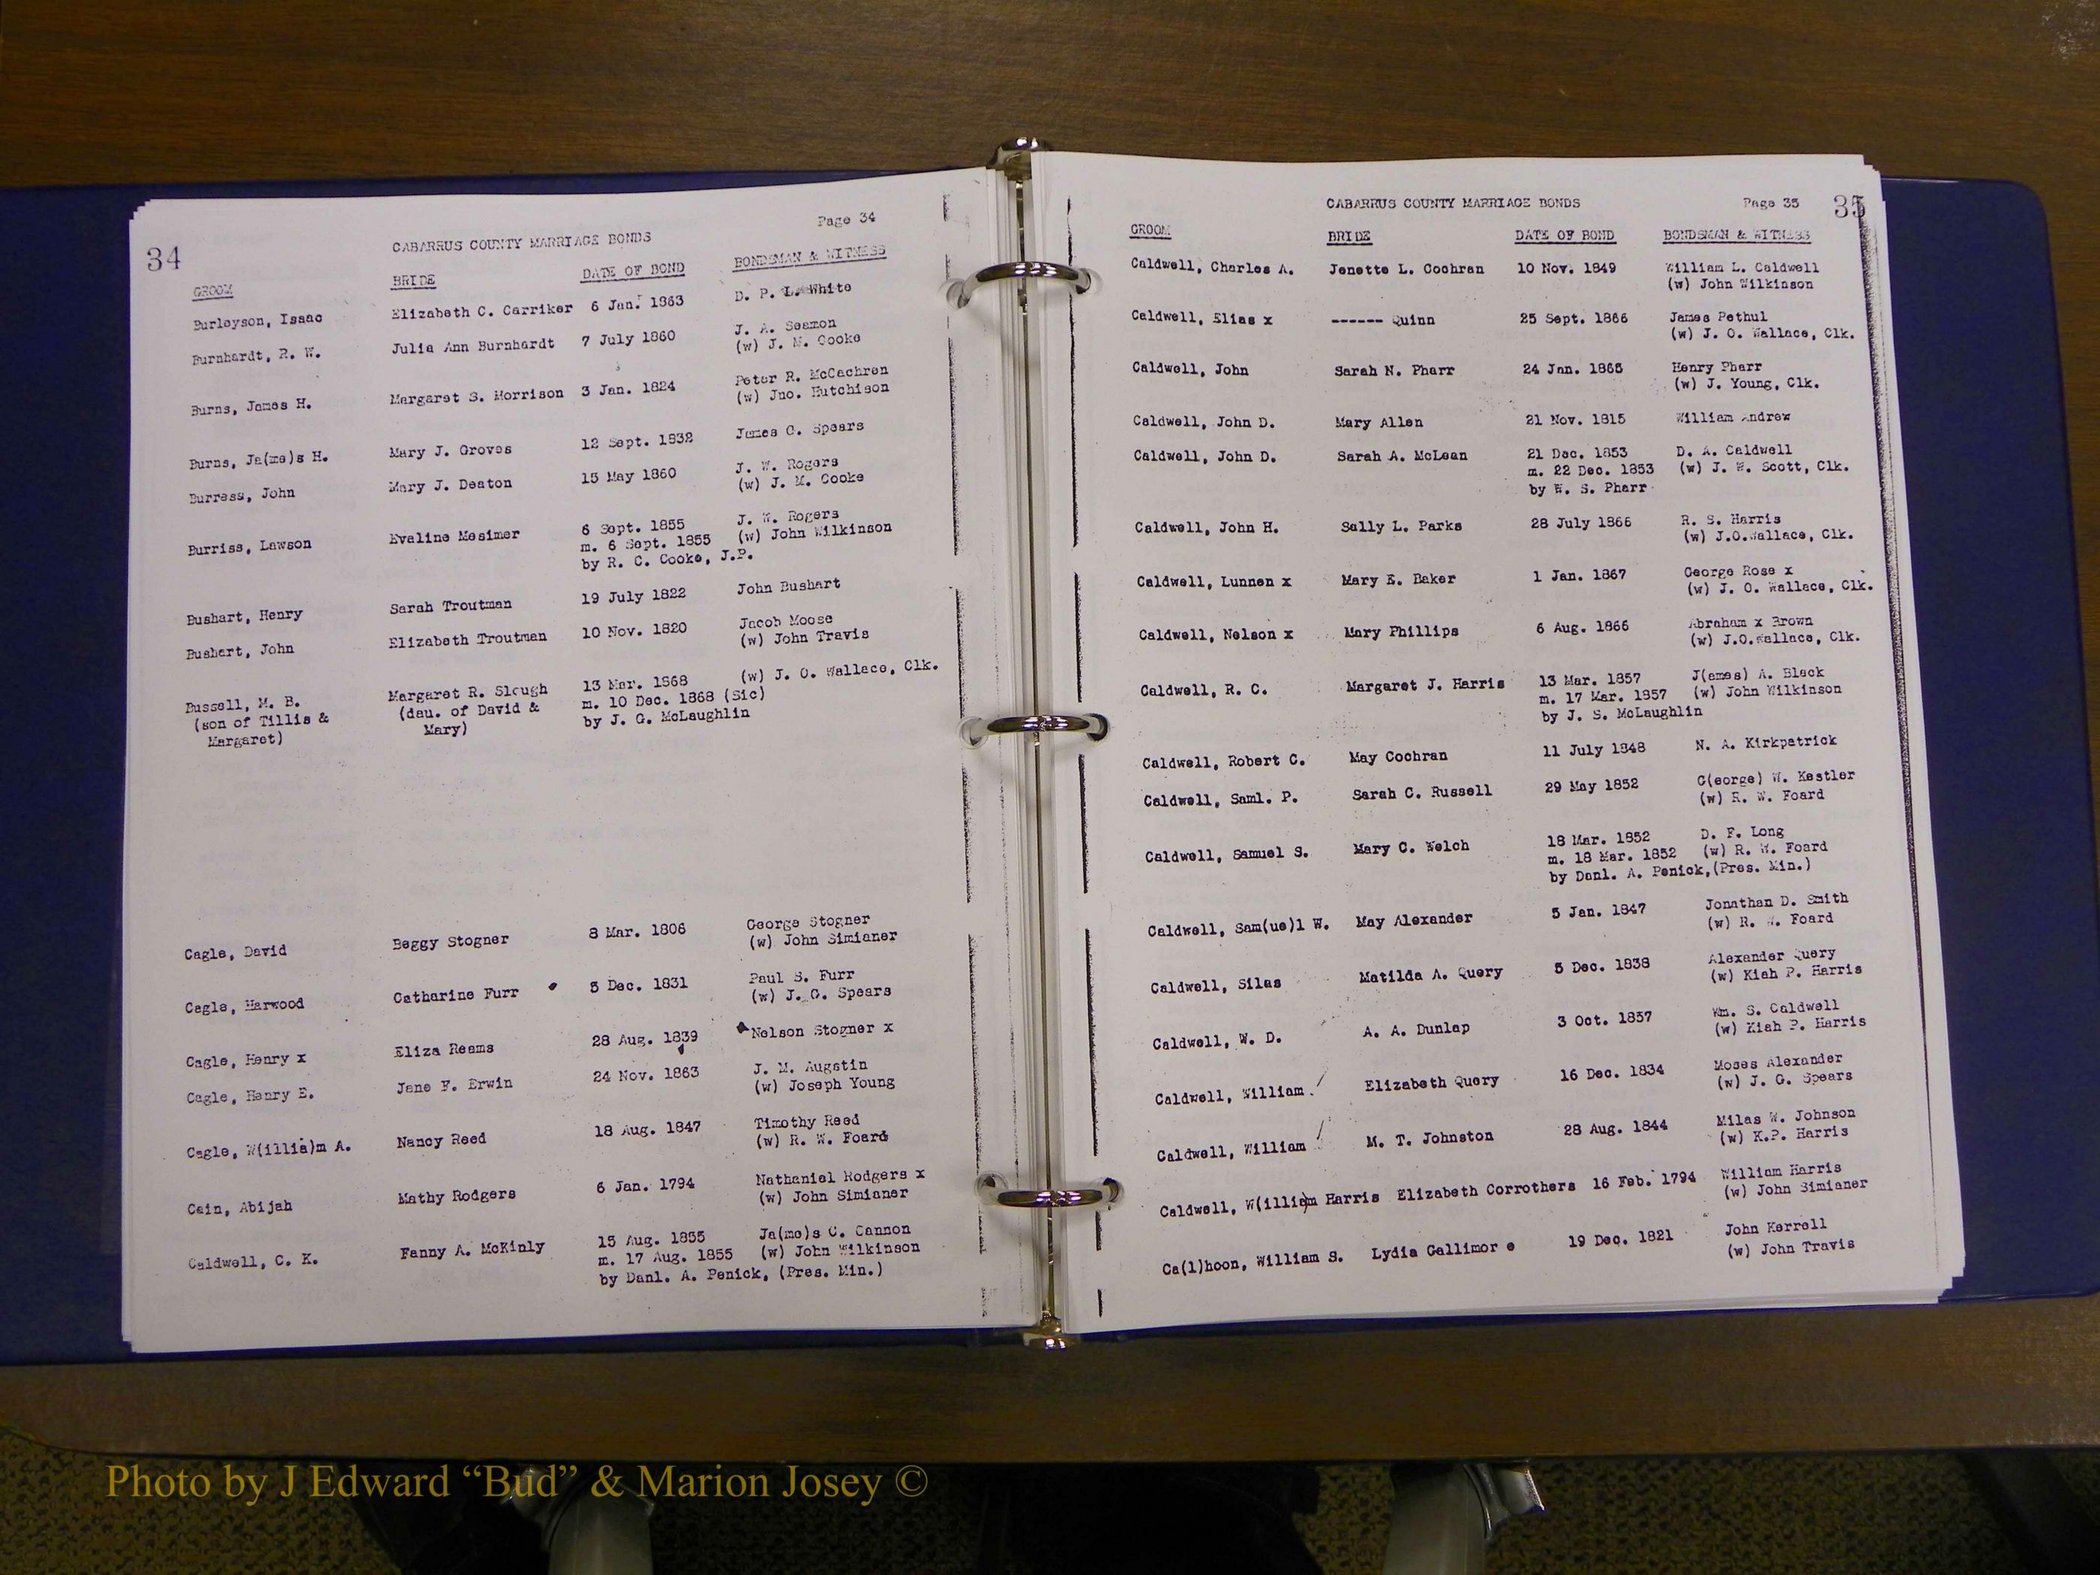 34
Page 34
CABARRUS COUNTY MARRIAGE BONDS
GROOM BRIDE DATE OF BOND BONDSMAN & WITNESS
Burleyson, Isaac Elizabeth C. Carriker 6 Jan. 1863 D. P. L. White
Burnhardt, R. W. Julia Ann Burnhardt 7 July 1860 J. A. Seamon
(w) J. M. Cooke
Burns, James H. Margaret S. Morrison 3 Jan. 1824 Peter R. McCachren
(w) Jno. Hutchison
Burns, Ja(me)s H. Mary J. Groves 12 Sept. 1832 James G. Spears
Burress, John Mary J. Deaton 15 May 1860 J. W. Rogers
(w) J. M. Cooke
Burriss, Lawson Eveline Mesimer 6 Sept. 1855 J. W. Rogers
m. 6 Sept. 1855 (w) John Wilkinson
by R. C. Cooke, J.P.
Bushart, Henry Sarah Troutman 19 July 1822 John Bushart
Bushart, John Elizabeth Troutman 10 Nov. 1820 Jacob Moose
(w) John Travis
Bussell, M. B. Margaret R. Slough 13 Mar. 1868 (w) J. O. Wallace, Clk.
(son of Tillis & (dau. of David & m. 10 Dec. 1868 (Sic)
Margaret) Mary) by J. G. McLaughlin
Cagle, David Beggy Stogner 8 Mar. 1806 George Stogner
(w) John Simianer
Cagle, Harwood Catharine Furr 5 Dec. 1831 Paul S. Furr
(w) J. G. Spears
Cagle, Henry x Eliza Reams 28 Aug. 1839 Nelson Stogner x
Cagle, Henry E. Jane F. Erwin 24 Nov. 1863 J. M. Augstin
(w) Joseph Young
Cagle, W(illia)m A. Nancy Reed 18 Aug. 1847 Timothy Reed
(w) R. W. Foard
Cain, Abijah Mathy Rodgers 6 Jan. 1794 Nathaniel Rodgers x
(w) John Simianer
Caldwell, C. K. Fanny A. McKinly 15 Aug. 1855 Ja(me)s C. Cannon
m. 17 Aug. 1855 (w) John Wilkinson
by Danl. A. Penick, (Pres. Min.)
CABARRUS COUNTY MARRIAGE BONDS Page 35 35
GROOM BRIDE DATE OF BOND BONDSMAN & WITNESS
Caldwell, Charles A. Jenette L. Cochran 10 Nov. 1849 William L. Caldwell
(w) John Wilkinson
Caldwell, Elias x ------ Quinn 25 Sept. 1866 James Pethul
(w) J. O. Wallace, Clk.
Caldwell, John Sarah N. Pharr 24 Jan. 1865 Henry Pharr
(w) J. Young, Clk.
Caldwell, John D. Mary Allen 21 Nov. 1815 William Andrew
Caldwell, John D. Sarah A. McLean 21 Dec. 1853 D. A. Caldwell
m. 22 Dec. 1853 (w) J. W. Scott, Clk.
by W. S. Pharr
Caldwell, John H. Sally L. Parks 28 July 1866 R. S. Harris
(w) J.O.Wallace, Clk.
Caldwell, Lunnen x Mary E. Baker 1 Jan. 1867 George Rose x
(w) J. O. Wallace, Clk.
Caldwell, Nelson x Mary Phillips 6 Aug. 1866 Abraham x Brown
(w) J.O.Wallace, Clk.
Caldwell, R. C. Margaret J. Harris 13 Mar. 1857 J(ames) A. Black
m. 17 Mar. 1857 (w) John Wilkinson
by J. S. McLaughlin
Caldwell, Robert C. May Cochran 11 July 1848 N. A. Kirkpatrick
Caldwell, Saml. P. Sarah C. Russell 29 May 1852 G(eorge) W. Kestler
(w) R. W. Foard
Caldwell, Samuel S. Mary C. Welch 18 Mar. 1852 D. F. Long
m. 18 Mar. 1852 (w) R. W. Foard
by Danl. A. Penick,(Pres. Min.)
Caldwell, Sam(ue)l W. May Alexander 5 Jan. 1847 Jonathan D. Smith
(w) R. W. Foard
Caldwell, Silas Matilda A. Query 5 Dec. 1838 Alexander Query
(w) Kiah P. Harris
Caldwell, W. D. A. A. Dunlap 3 Oct. 1857 Wm. S. Caldwell
(w) Kiah P. Harris
Caldwell, William Elizabeth Query 16 Dec. 1834 Moses Alexander
(w) J. G. Spears
Caldwell, William M. T. Johnston 28 Aug. 1844 Milas W. Johnson
(w) K.P. Harris
Caldwell, W(illia)m Harris Elizabeth Corrothers 16 Feb. 1794 William Harris
(w) John Simianer
Ca(l)hoon, William S. Lydia Gallimor e 19 Dec. 1821 John Kerrell
(w) John Travis
Photo by J Edward “Bud” & Marion Josey ©